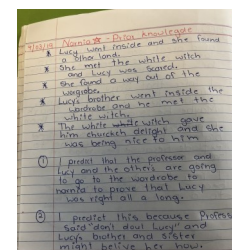 Narnia - Prior Knowlegde
* Lucy went inside and she found
a other land.
* She met the white witch
and Lucy was scared.
* She found a way out of the
wardrobe.
* Lucy's brother went inside the
wardrobe and he met the
white witch.
* The white witch gave
him delight and she
was being nice to him
① I predict that the professor and
Lucy and the others are going
to go to the wardrobe to
narnia to prove that Lucy
was right all a long.
② I predict this because Profess
said "don't Lucy" and
Lucy's brother and sisters
might belive her now.